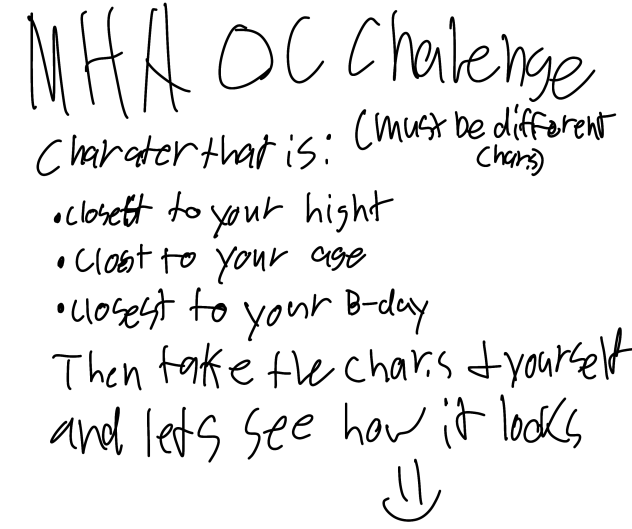 MHA OC Chalenge
Charaterthat is: (must be different
chars)
•closett to your hight
•Clost to your age
•closest to your B-day
Then take the chars + yourself
and lets see how it looks